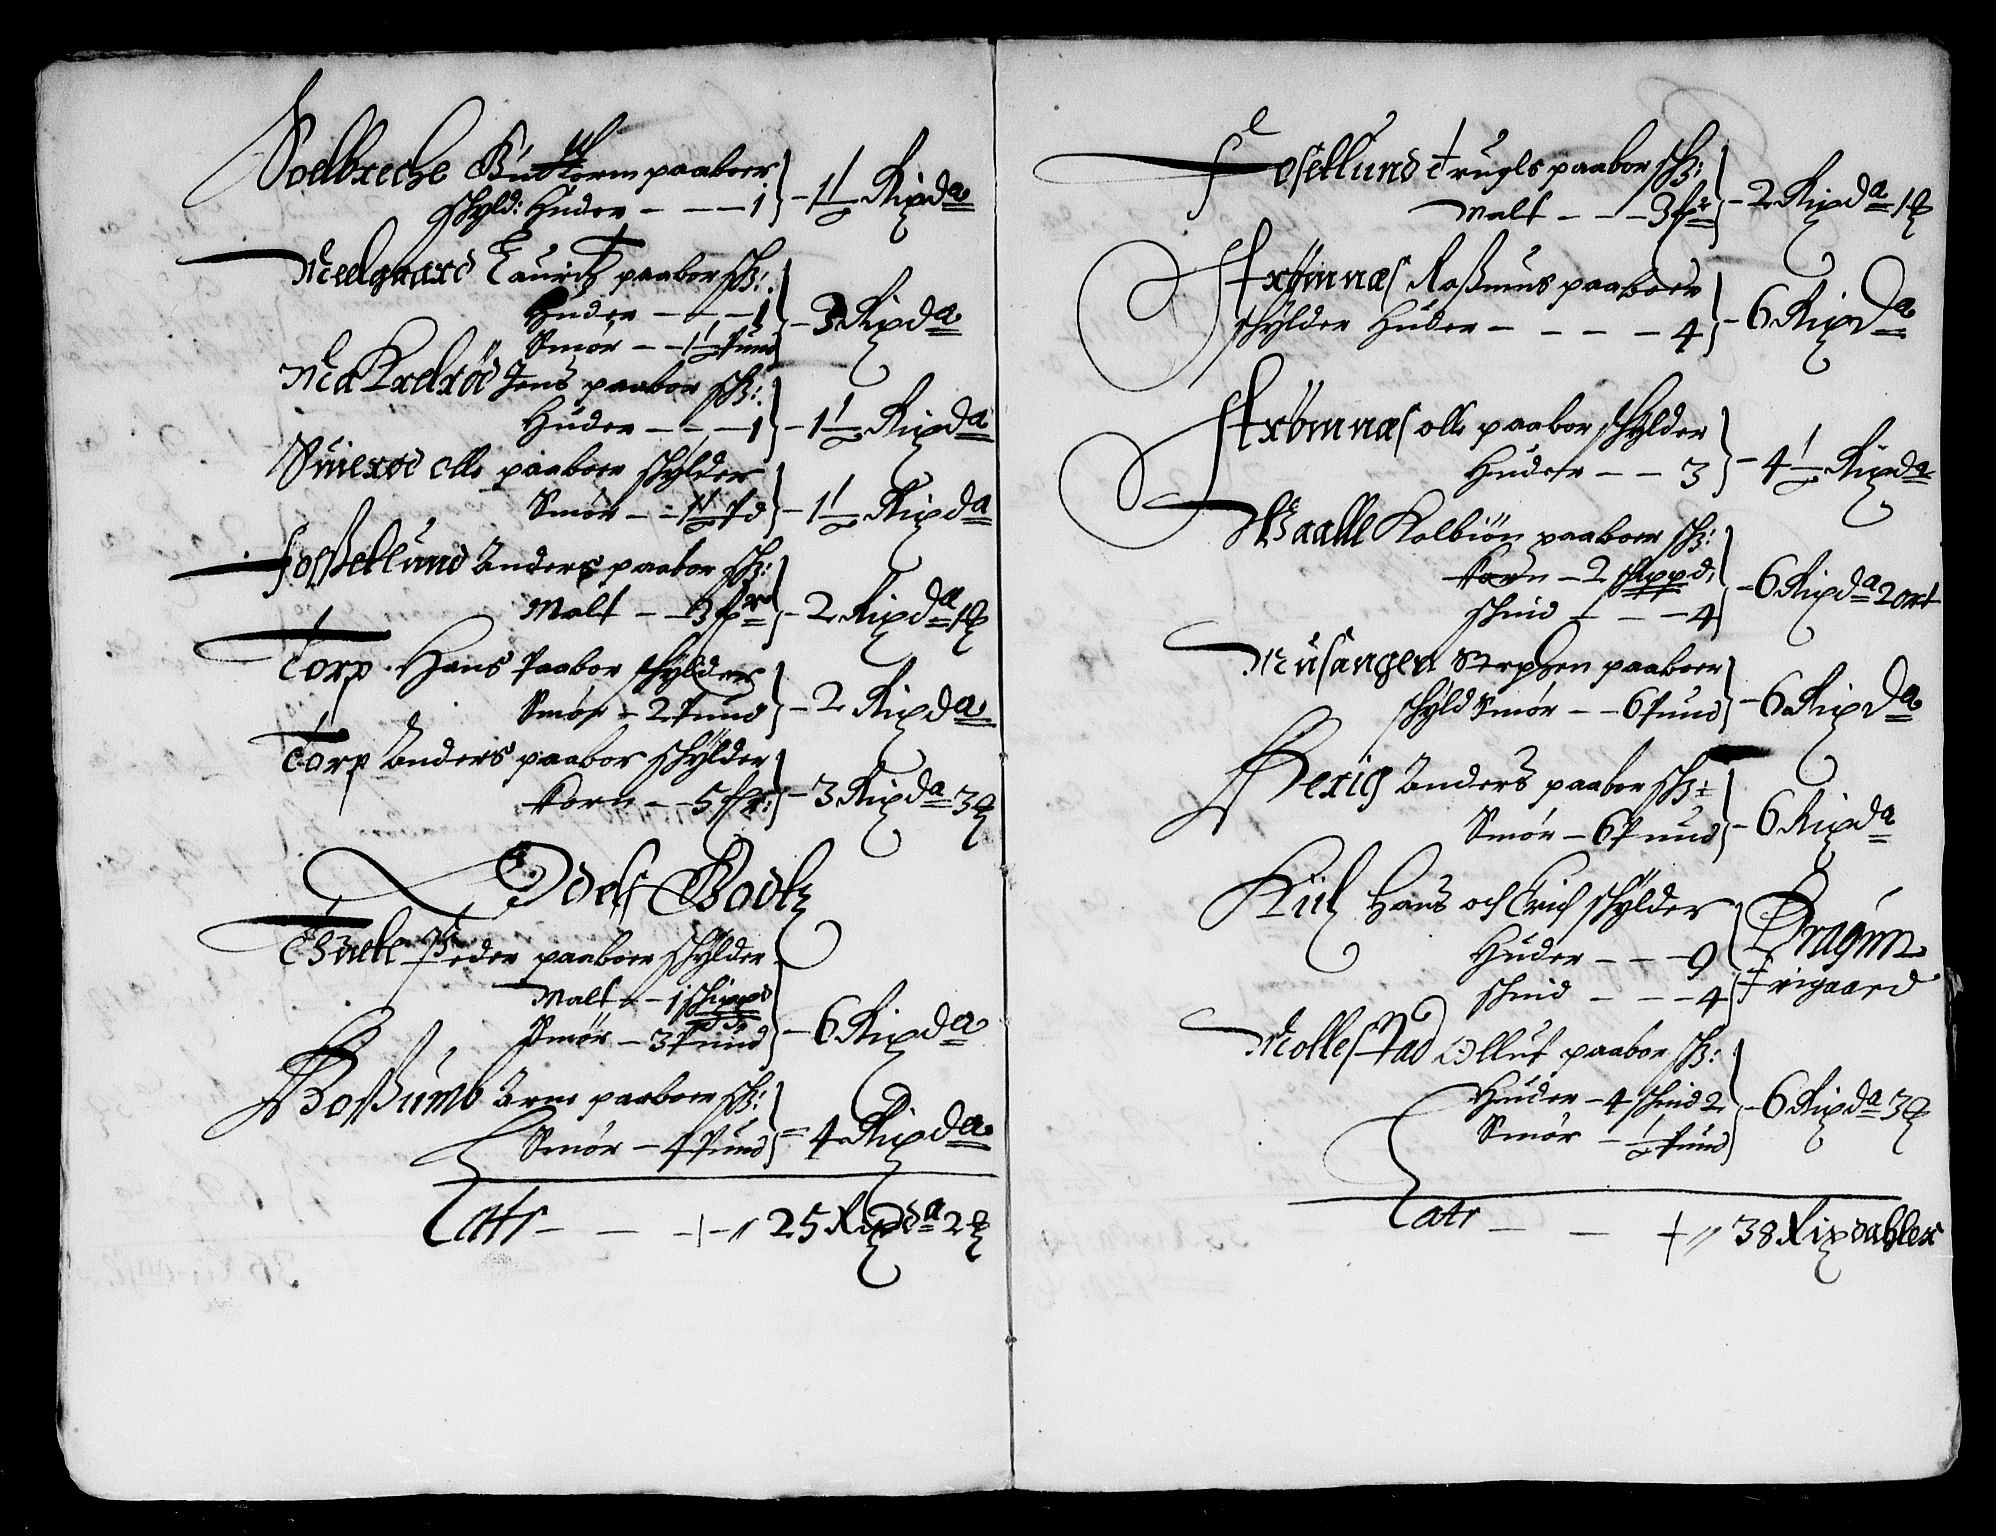 Solbreche Guttorm paaboer
schyld: Huder - - - 1 } - 1½ Rixda
Melgaard Lauritz paabor sch:
Huder - - - 1
Smør - - 1½ Pund } - 3 Rixda
Makrelrød Jens paabor sch:
Huder - - - 1 } - 1½ Rixda
Suierød olle paaboer schylder
Smør - - 1½ Pd } - 1½ Rixda
Fosßellund Anders paabor sch:
Malt - - 3 fr } - 2 Rixda 1 ȹ
Torp Hans Paabor schylder
Smør - 2 Pund } - 2 Rixda
Torp Anders paabor schylder
Korn - - 5 ffr: } - 3 Rixda 3 ȹ
Odels Bodtz
Peder paaboer schylder
Malt - - 1 schippd
Smør - 3 Pund } - 6 Rixda
Boßumb Arne paaboer sch:
Smør - 4 Pund } = 4 Rixda
Latr - - + - // 25 Rixda 2 ȹ
Fosellund Trugls paabor sch:
Malt - - - 3 fr } - 2 Rixda 1 ȹ
Strømnæs Raßmus paaboer
schylder Huder - - - - 4 } - 6 Rixda
Strømnæs olle paabor schylder
Huder - - 3 } - 4½ Rixda
Waalle Kolbiøn paaboer sch:
Korn - 2 schippd,
schind - - - 4 } - 6 Rixda 2 ort
Musangen Stephen paaboer
schyld Smør - - 6 Pund } - 6 Rixda
Berich Anders paabor sch:
Smør - 6 Pund } - 6 Rixda
Kiil Hans och Erich schylder
Huder - - - 9
schind - - - 4 } Dragon frigaard
Mollestad Olluf paabor sch:
Huder - 4 schind 2
Smør - ½ Pund } - 6 Rixda 3 ȹ
Latr - - + // 38 Rixdahler